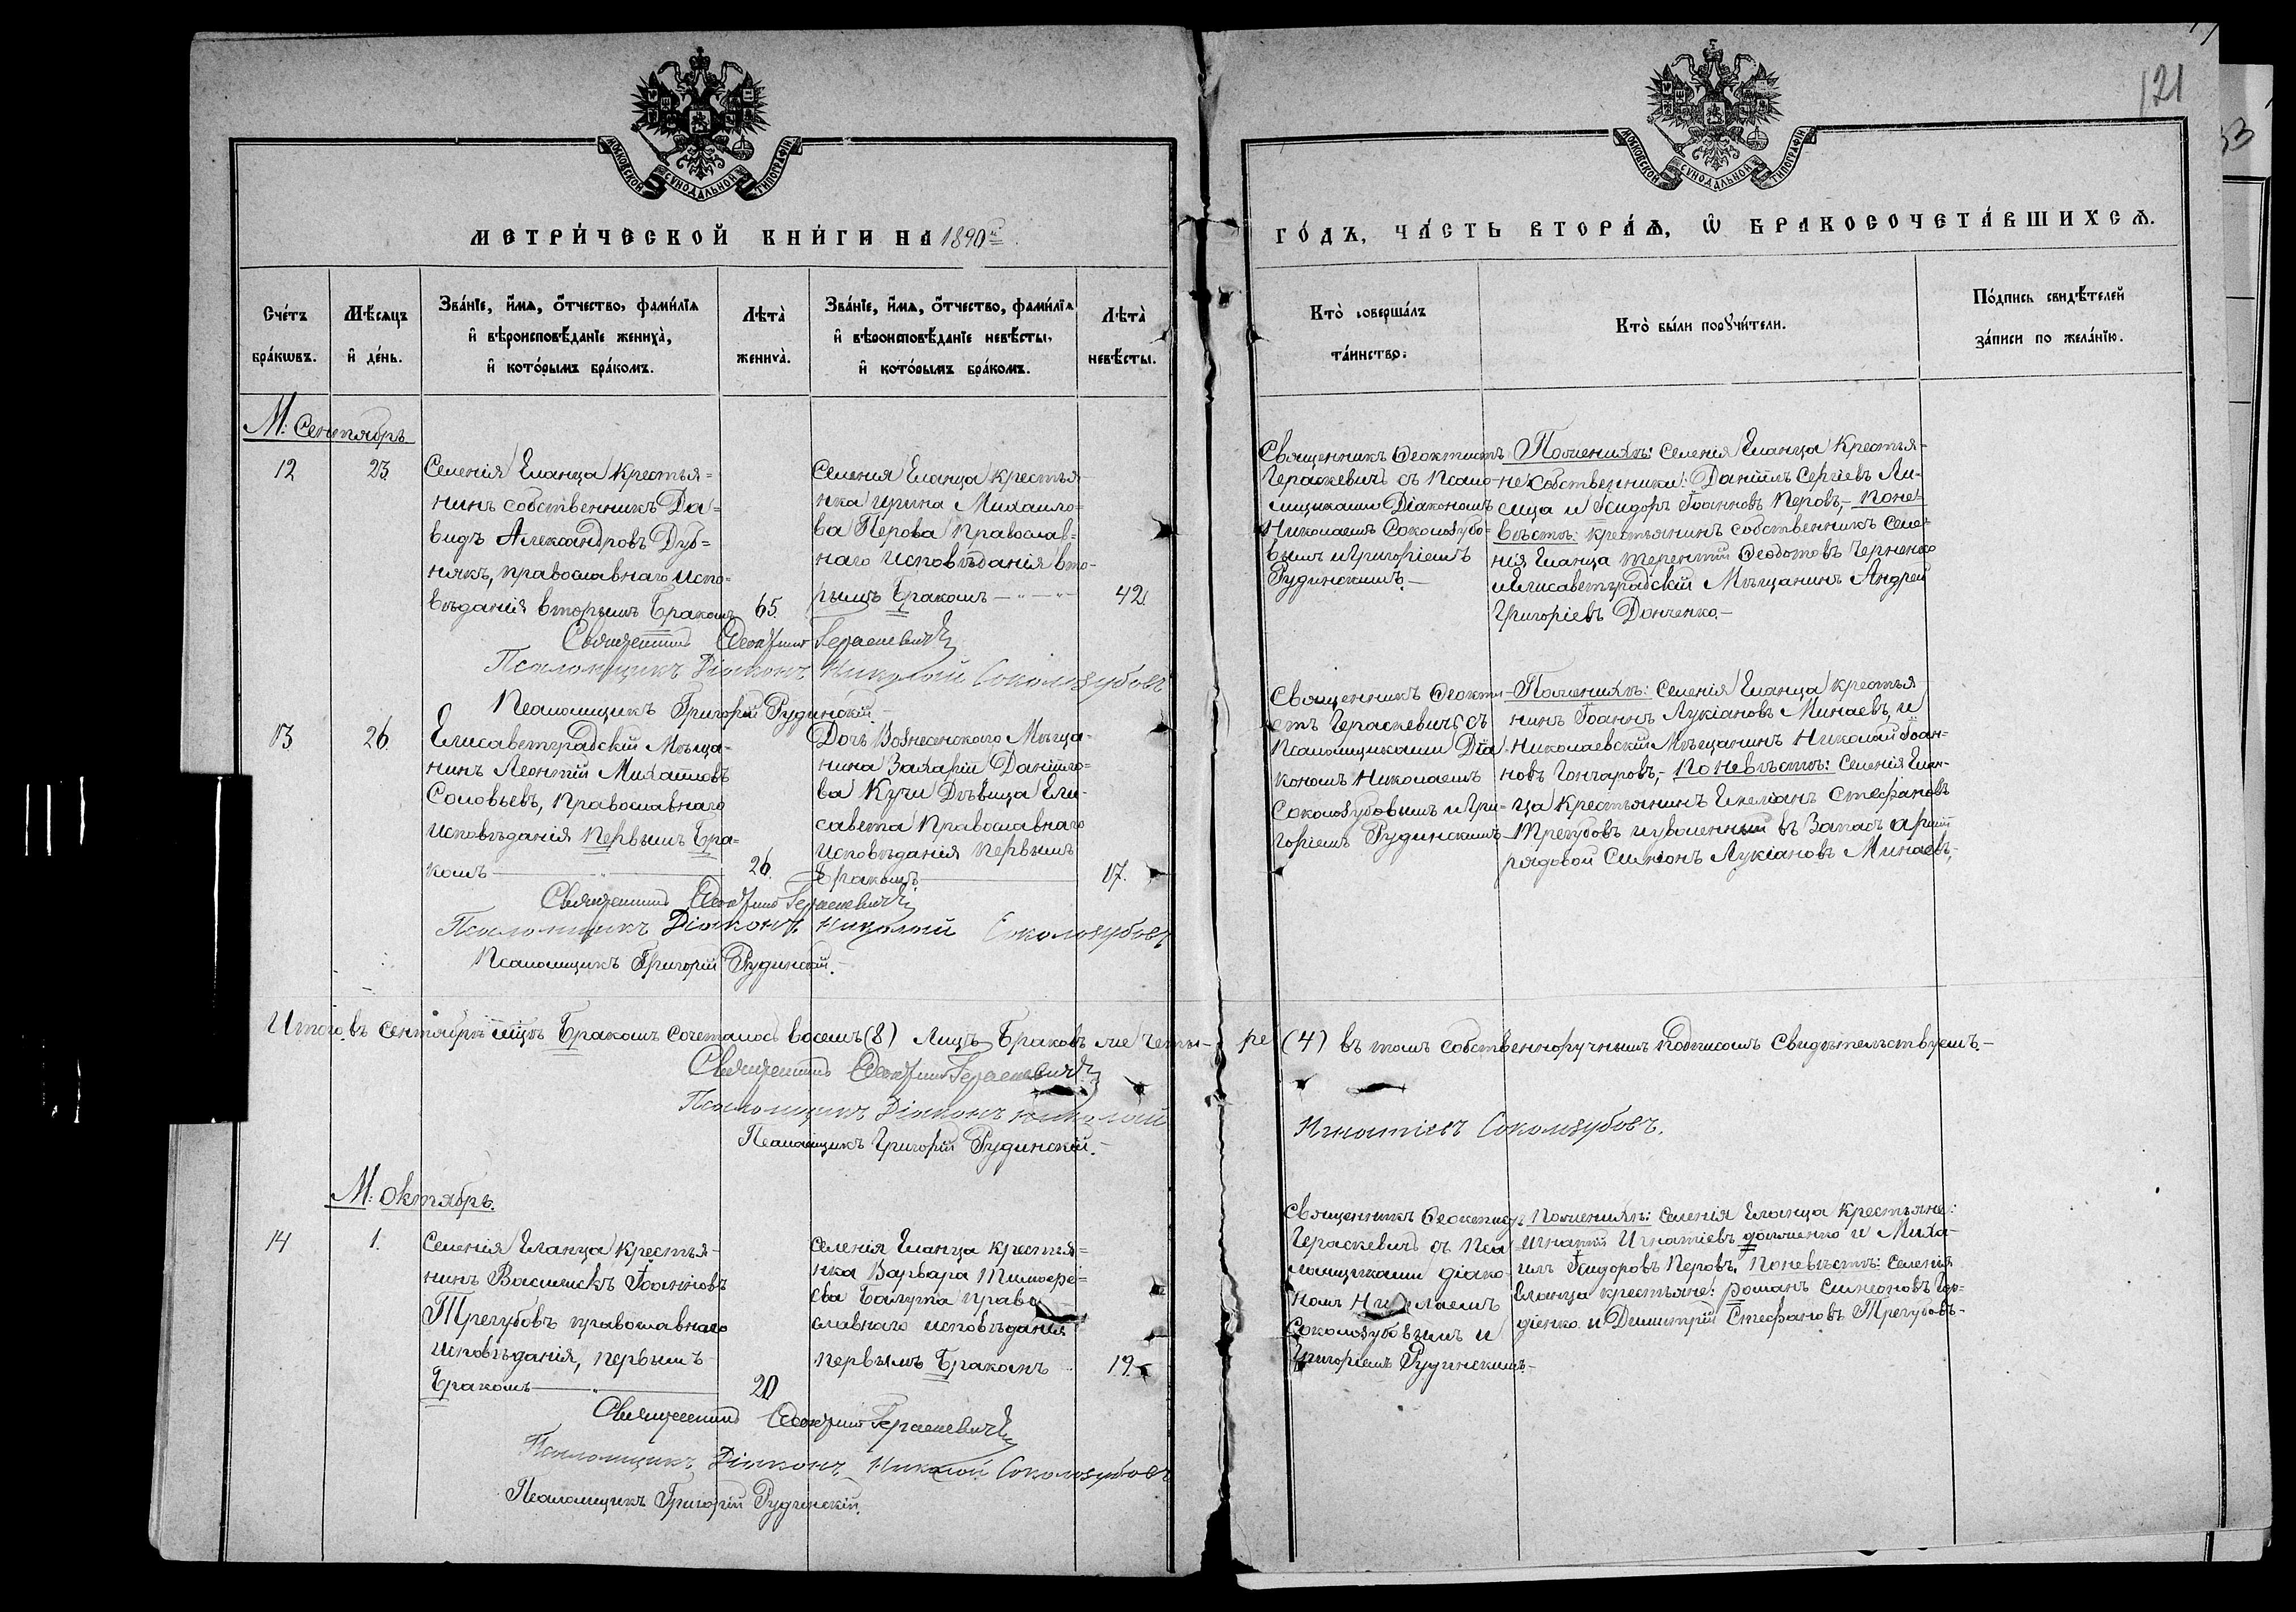 121
МОСКОВСКОЙ СѴНОДАЛЬНОЙ ТИПОГРАФІИ
МОСКОВСКОЙ СѴНОДАЛЬНОЙ ТИПОГРАФІИ
МЕТРИ́ЧЕСКОЙ КНИ́ГИ НА 1890й
ГО́ДЪ, ЧА́СТЬ ВТОРА́Ѧ, Ѽ БРАКОСОЧЕТА́ВШИХСѦ.
Сче́тъ бра́кѡвъ.
Мѣ́сяцъ и҆ де́нь.
Зва́нїе, и҆́мѧ, ѻ҆́тчество, фами́лїѧ
и҆ вѣроисповѣ́данїе жениха̀,
и҆ кото́рымъ бра́комъ.
Лѣта̀ жениха̀.
Зва́нїе, и҆́мѧ, ѻ҆́тчество, фами́лїѧ
и҆ вѣроисповѣ́данїе невѣ́сты,
и҆ кото́рымъ бра́комъ.
Лѣта̀ невѣ́сты.
Кто̀ соверша́лъ
та́инство.
Кто̀ бы́ли порꙋчи́тели.
По́дпись свидѣ́телей
за́писи по жела́нїю.
М. Сентябрь
12
23.
Селенія Еланца Крестья=
нинъ собственникъ Да=
видъ Александровъ Дуб=
някъ, православнаго Испо=
вѣданія вторымъ Бракомъ
65.
Селенія Еланца Крестья
нка Ирина Михаило=
ва Перова Православ=
наго Исповѣданія вто-
рымъ Бракомъ
42.
Священникъ Ѳеоктистъ
Гераскевичъ съ Псало-
мщиками Діакономъ
Николаемъ Соколозубо=
вымъ и Григоріемъ
Рудинскимъ.-
По женихѣ: Селенія Еланца Крестья-
не Собственники: Даніилъ Сергіевъ Ли-
сица и Исидоръ Іоанновъ Перовъ,- по не-
вѣстѣ: крестьянинъ собственникъ Селе-
нія Еланца Терентій Ѳеодотовъ Черненко
и Елисаветградскій Мѣщанинъ Андрей
Григоріевъ Донченко.-
Священникъ Ѳеоктистъ Гераскевичъ
Псаломщикъ Діаконъ Николай Соколозубовъ
Псаломщикъ Григорій Рудинскій.
13
26.
Елисаветградскій Мѣща-
нинъ Леонтій Михаиловъ
Соловьевъ, Православнаго
Исповѣданія Первымъ Бра=
комъ
26.
Дочь Вознесенского Мѣща-
нина Захарія Даніило=
ва Кучи Дѣвица Ели-
савета Православнаго
Исповѣданія Первымъ
Бракомъ
17.
Священникъ Ѳеокти-
стъ Гераскевичъ съ
Псаломщиками Діа-
кономъ Николаемъ
Соколозубовымъ и Гри-
горіемъ Рудинскимъ
По женихѣ: Селенія Еланца крестья
нинъ Іоаннъ Лукіановъ Минаевъ, и
Николаевскій Мѣщанинъ Николай Іоан-
новъ Гончаровъ,- По невѣстѣ: Селенія Елан-
ца Крестьянинъ Емеліанъ Стефановъ
Трегубовъ и уволенный въ Запасъ арміи
рядовой Симіонъ Лукіановъ Минаевъ,-
Священникъ Ѳеоктистъ Гераскевичъ
Псаломщикъ Діаконъ Николай Соколозубовъ
Псаломщикъ Григорій Рудинскій.-
Итого въ Сентябрѣ мцѣ Бракомъ сочеталось восемь (8) лицъ Браковъ же четы-
ре (4) въ томъ собственноручнымъ подписомъ Свидѣтельствуемъ.-
Священникъ Ѳеоктистъ Гераскевичъ
Псаломщикъ Діаконъ Николай
Игнатіевъ Соколозубовъ.
Псаломщикъ Григорій Рудинскій.-
М. Октябрь.
14
1.
Селенія Еланца Крестья-
нинъ Василискъ Іоанновъ
Трегубовъ православнаго
Исповѣданія, первымъ
Бракомъ
20
Селенія Еланца крестья=
нка Варвара Тимофе-
ева Балута право
славнаго исповѣданія
первымъ Бракомъ
19.
Священникъ Ѳеоктистъ
Гераскевичъ съ Пса-
ломщиками діако-
номъ Николаемъ
Соколозубовымъ и
Григоріемъ Рудинскимъ-
По женихѣ: Селенія Еланца Крестьяне:
Игнатій Игнатіевъ и Миха-
илъ Исидоровъ Перовъ, По невѣстѣ: Селенія
Еланца крестьяне: романъ Симеоновъ Гор-
діенко и Димитрій Стефановъ Трегубовъ-
Священникъ Ѳеоктистъ Гераскевичъ
Псаломщикъ Діаконъ Николай Соколозубовъ
Псаломщикъ Григорій Рудинскій.